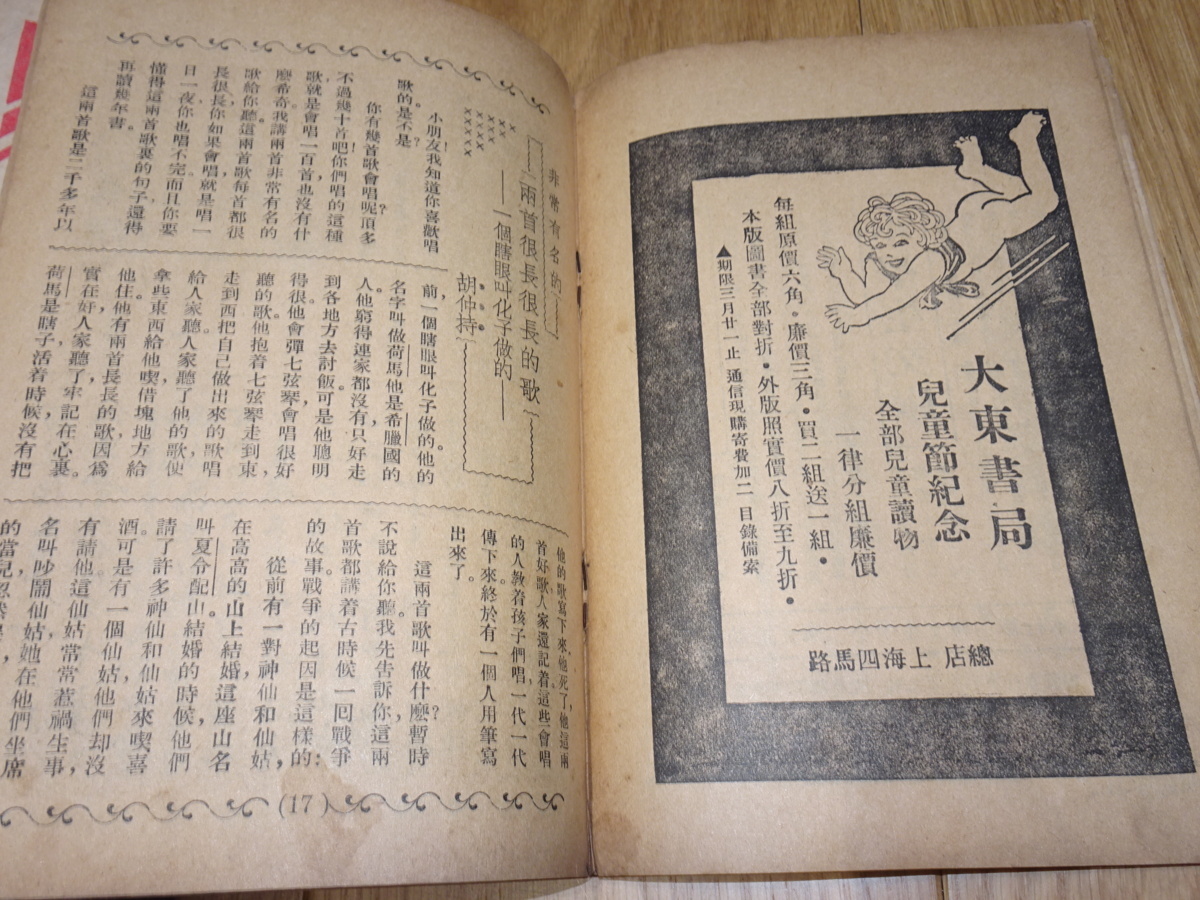 大東書局
兒童節紀念
全部兒童讀物
一律分組廉價
每組原價六角・廉價三角・買二組送一組・
本版圖書全部對折・外版照實價八折至九折・
▲期限三月廿一止 通信現購寄費加二 目錄備索
總店 上海四馬路
非常有名的
兩首很長很長的歌
——一個瞎眼叫化子做的——
胡仲持
小朋友!我知道你喜歡唱
歌的。是不是?
你有幾首歌會唱呢?頂多
不過幾十首吧!你們唱的這種
歌,就是會唱一百首也沒有什
麼希奇。我講兩首非常有名的
歌給你聽。這兩首歌每首都很
長很長,你如果會唱,就是唱一
日一夜你也唱不完。而且你要
懂得這兩首歌裏的句子,還得
再讀幾年書。
這兩首歌是二千多年以
前,一個瞎眼叫化子做的。他的
名字叫做荷馬,他是希臘國的
人。他窮得連家都沒有,只好走
到各地方去討飯。可是他聰明
得很,他會彈七弦琴,會唱很好
聽的歌。他抱着七弦琴走到東,
走到西,把自己做出來的歌唱
給人家聽。人家聽了他的歌,便
拿些東西給他喫,借塊地方給
他住。他有兩首長長的歌,因爲
實在好,人家聽了,牢記在心裏。
荷馬是瞎子,活着時候沒有把
他的歌寫下來。他死了,他這兩
首好歌,人家還記着。這些會唱
的人教着孩子們唱,一代一代
傳下來,終於有一個人用筆寫
出來了。
這兩首歌叫做什麼?暫時
不說給你聽。我先告訴你,這兩
首歌都講着古時候一回戰爭
的故事。戰爭的起因是這樣的:
從前有一對神仙和仙姑,
在高高的山上結婚,這座山名
叫夏令配山。結婚的時候,他們
請了許多神仙和仙姑來喫喜
酒。可是有一個仙姑,他們却沒
有請他。這仙姑常常惹禍生事,
名叫吵鬧仙姑。她在他們坐席
的當兒,忽然
(17)